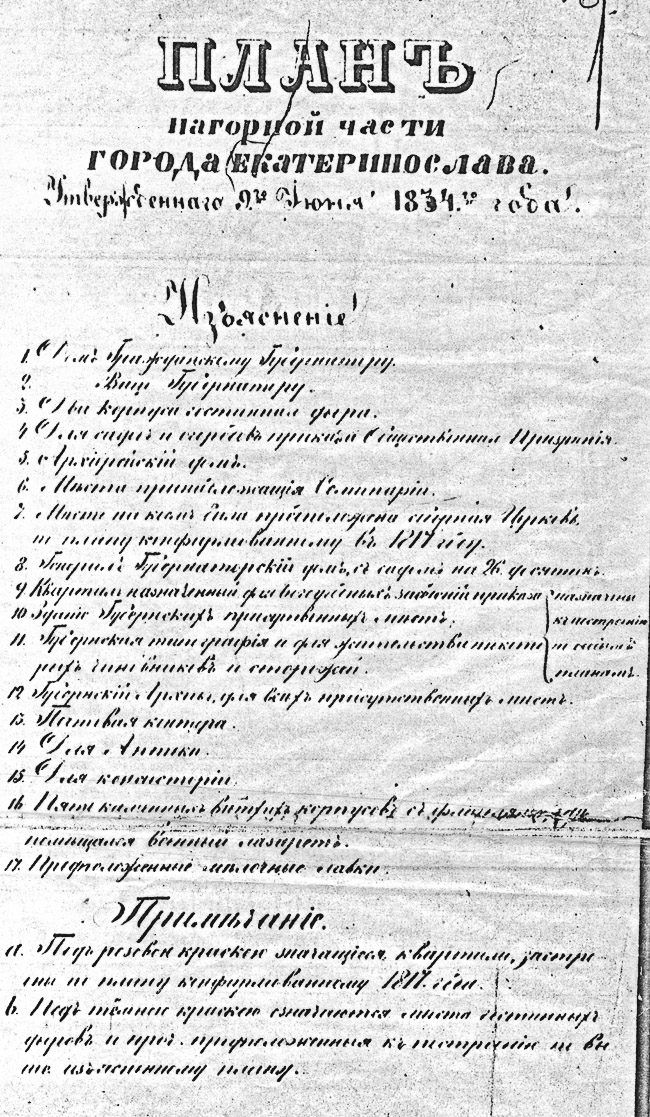 ПЛАНЪ
нагорной части
ГОРОДА ЕКАТЕРИНОСЛАВА.
Утвержденнаго 9го Іюня 1834.го года.
Изъясненіе
1. Домъ Гражданскому Губернатору.
2. Вице Губернатору.
3. Два корпуса двора.
4. Для сада и приказа Общественнаго Призрѣнія.
5. Архіерейскій домъ.
6. Мѣста принадлежащія Семинаріи.
7. Мѣсто на коемъ была предположена Церковь,
по плану конфирмованному въ 1817 году.
8. Генералъ Губернаторскій домъ, съ садомъ на 26. десятин.
9. Кварталъ назначенный для приказа назначены
10. зданіе Губернскихъ присутвенныхъ мѣстъ; къ построенію
11. Губернская типографія и для жительства по особымъ
чиновниковъ и сторожей. планамъ.
12. Губернскій Архивъ, для всѣхъ присутственныхъ мѣстъ.
13. Почтовая контора.
14. Для Аптеки.
15. Для консисторіи.
16. Пять каменныхъ корпусовъ съ флигелями
помѣщался военный лазаретъ.
17. Предположенные мѣлочные лавки.
Примѣчаніе.
a. Подъ розовою краскою значащіеся, кварталы, застрое
ны по плану конфирмованному 1817. года.
b. Подъ тѣмною краскою означаются мѣста
дворовъ и проч. предположенныя къ построенію по вы
ше изъясненному плану.